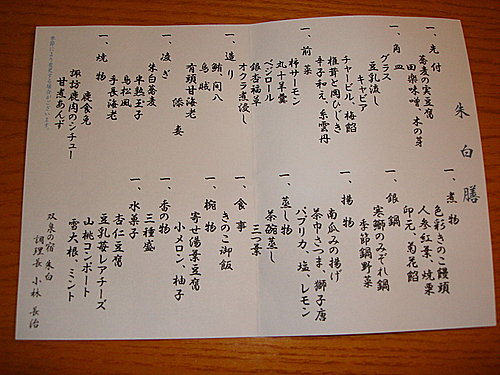 朱白膳
一、先付
蕎麦の実豆腐
田楽味噌、木の芽
一、角皿
グラス
豆乳流し
キャビア
チャービル、梅餡
椎茸と岡ひじき
辛子和え、糸雲丹
一、前菜
柿サーモン
丸十羊羹
ベジロール
銀杏福草
オクラ煮浸し
一、造り
鮪、間八
烏賊
有頭甘海老
一、凌ぎ
朱白蕎麦
半熟玉子
鳥松風
手長海老
一、焼物
鹿食免
諏訪鹿肉のシチュー
甘煮あんず
季節により変更する場合がございます。
一、煮物
色彩きのこ饅頭
人参紅葉、焼栗
印元、菊花餡
一、銀鍋
寒鰤のみぞれ鍋
季節鍋野菜
一、揚物
南瓜みの揚げ
茶巾さつま、獅子唐
パプリカ、塩、レモン
一、蒸し物
茶碗蒸し
三つ葉
一、食事
きのこ御飯
一、椀物
寄せ湯葉豆腐
小メロン、柚子
一、香の物
三種盛
一、水菓子
杏仁豆腐
豆乳苺レアチーズ
山桃コンポート
雪大根、ミント
双泉の宿 朱白
調理長 小林 長治